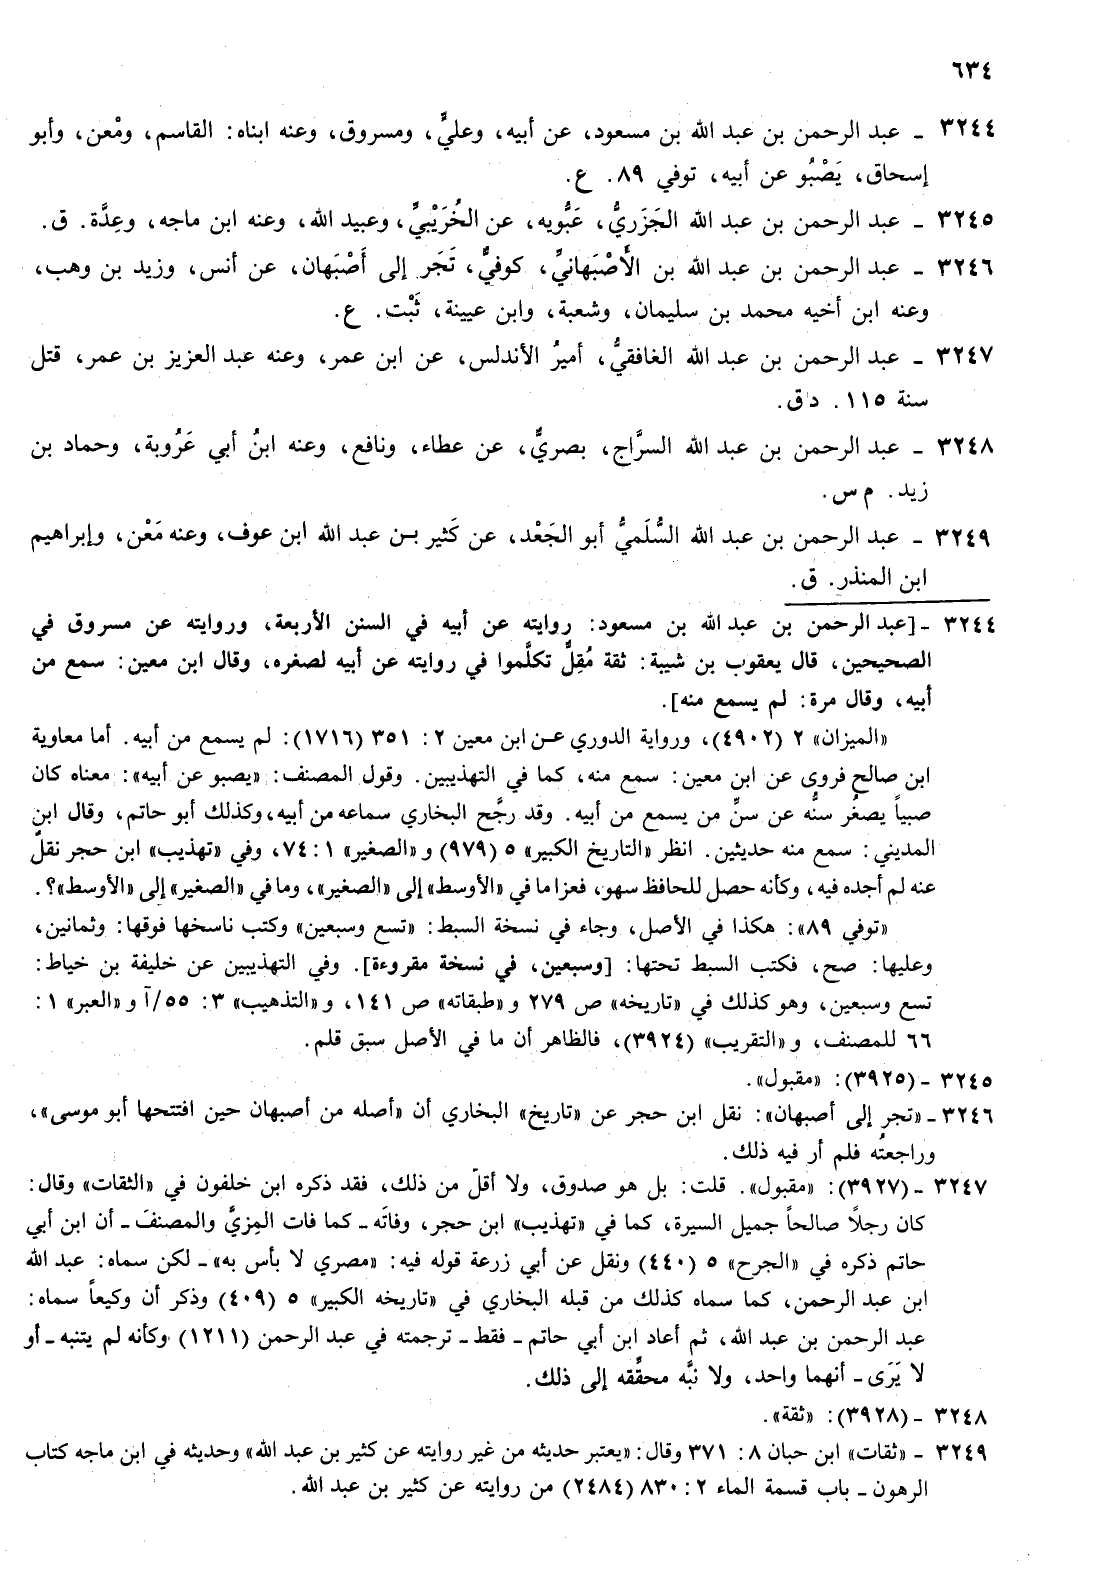 ٦٣٤
٣٢٤٤ ـ عبد الرحمن بن عبد الله بن مسعود، عن أبيه، وعليٍّ، ومسروق، وعنه ابناه: القاسم، ومْعن، وأبو
إسحاق، يَصْبُو عن أبيه، توفي ٨٩. ع.
٣٢٤٥ ـ عبد الرحمن بن عبد الله الجَزَريُّ، عَبُّويه، عن الخُرَيْبيِّ، وعبيد الله، وعنه ابن ماجه، وعِدَّة. ق.
٣٢٤٦ ـ عبد الرحمن بن عبد الله بن الأَصْبَهانيِّ، كوفيٌّ، تَجَر إلى أَصْبَهان، عن أنس، وزيد بن وهب،
وعنه ابن أخيه محمد بن سليمان، وشعبة، وابن عيينة، ثَبْت. ع.
٣٢٤٧ ـ عبد الرحمن بن عبد الله الغافقيُّ، أميرُ الأندلس، عن ابن عمر، وعنه عبد العزيز بن عمر، قتل
سنة ١١٥. د ق.
٣٢٤٨ ـ عبد الرحمن بن عبد الله السرَّاج، بصريٌّ، عن عطاء، ونافع، وعنه ابنُ أبي عَرُوبة، وحماد بن
زيد. م س.
٣٢٤٩ ـ عبد الرحمن بن عبد الله السُّلَميُّ أبو الجَعْد، عن كَثير بـن عبد الله ابن عوف، وعنه مَعْن، وإبراهيم
ابن المنذر. ق.
٣٢٤٤ ـ [عبد الرحمن بن عبد الله بن مسعود: روايته عن أبيه في السنن الأربعة، وروايته عن مسروق في
الصحيحين، قال يعقوب بن شيبة: ثقة مُقِلٌّ تكلَّموا في روايته عن أبيه لصغره، وقال ابن معين: سمع من
أبيه، وقال مرة: لم يسمع منه].
«الميزان» ٢ (٤٩٠٢)، ورواية الدوري عـن ابن معين ٢: ٣٥١ (١٧١٦): لم يسمع من أبيه. أما معاوية
ابن صالح فروى عن ابن معين: سمع منه، كما في التهذيبين. وقول المصنف: «يصبو عن أبيه»: معناه كان
صبياً يصغُر سنُّه عن سنِّ من يسمع من أبيه. وقد رجَّح البخاري سماعه من أبيه، وكذلك أبو حاتم، وقال ابن
المديني: سمع منه حديثين. انظر «التاريخ الكبير» ٥ (٩٧٩) و «الصغير» ١: ٧٤، وفي «تهذيب» ابن حجر نقلٌ
عنه لم أجده فيه، وكأنه حصل للحافظ سهو، فعزا ما في «الأوسط» إلى «الصغير»، وما في «الصغير» إلى «الأوسط»؟.
«توفي ٨٩»: هكذا في الأصل، وجاء في نسخة السبط: «تسع وسبعين» وكتب ناسخها فوقها: وثمانين،
وعليها: صح، فكتب السبط تحتها: [وسبعين، في نسخة مقروءة]. وفي التهذيبين عن خليفة بن خياط:
تسع وسبعين، وهو كذلك في «تاريخه» ص ٢٧٩ و «طبقاته» ص ١٤١، و «التذهيب» ٣: ٥٥/آ و «العبر» ١:
٦٦ للمصنف، و «التقريب» (٣٩٢٤)، فالظاهر أن ما في الأصل سبق قلم.
٣٢٤٥ ـ (٣٩٢٥): «مقبول».
٣٢٤٦ ـ «تجر إلى أصبهان»: نقل ابن حجر عن «تاريخ» البخاري أن «أصله من أصبهان حين افتتحها أبو موسى»،
وراجعتُه فلم أر فيه ذلك.
٣٢٤٧ ـ (٣٩٢٧): «مقبول». قلت: بل هو صدوق، ولا أقلّ من ذلك، فقد ذكره ابن خلفون في «الثقات» وقال:
كان رجلاً صالحاً جميل السيرة، كما في «تهذيب» ابن حجر، وفاتَه ـ كما فات المِزيَّ والمصنفَ ـ أن ابن أبي
حاتم ذكره في «الجرح» ٥ (٤٤٠) ونقل عن أبي زرعة قوله فيه: «مصري لا بأس به» ـ لكن سماه: عبد الله
ابن عبد الرحمن، كما سماه كذلك من قبله البخاري في «تاريخه الكبير» ٥ (٤٠٩) وذكر أن وكيعاً سماه:
عبد الرحمن بن عبد الله، ثم أعاد ابن أبي حاتم ـ فقط ـ ترجمته في عبد الرحمن (١٢١١) وكأنه لم يتنبه ـ أو
لا يَرَى ـ أنهما واحد، ولا نبَّه محقِّقه إلى ذلك.
٣٢٤٨ ـ (٣٩٢٨): «ثقة».
٣٢٤٩ ـ «ثقات» ابن حبان ٨: ٣٧١ وقال: «يعتبر حديثه من غير روايته عن كثير بن عبد الله» وحديثه في ابن ماجه كتاب
الرهون ـ باب قسمة الماء ٢: ٨٣٠ (٢٤٨٤) من روايته عن كثير بن عبد الله.